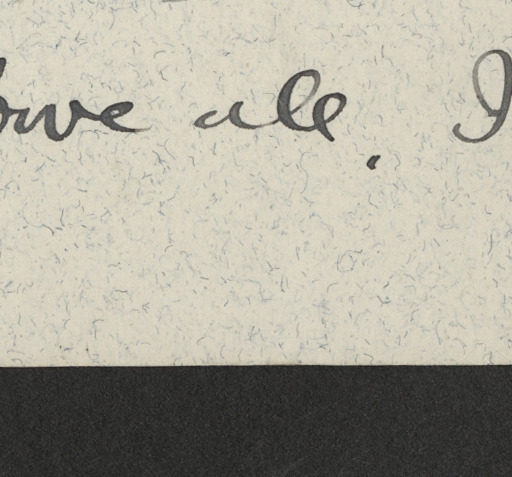 bove all, I